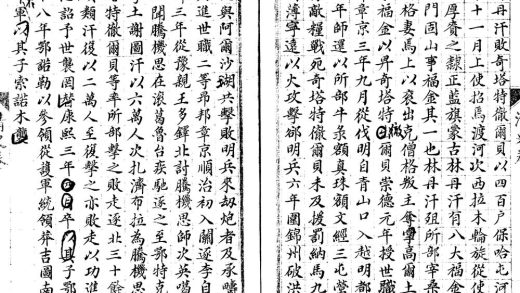 丹汗敗奇塔特徹爾貝以四百戶保哈屯河
十一月上使招馬渡河次西拉木輪旋從使
厚賚之隸正藍旗蒙古林丹汗有八大福金
門固山事福金其一也林丹汗殂所部宰桑
格妻馬上以衮出克僧格叛主奪寧高爾土
福金以昇奇塔特徹爾貝崇德元年授世職
章京三年九月從伐明自青山口入越明都
年師還以所部牛彔額真珠額文經三屯營
敵糧戰死奇塔特徹爾貝未及援罰納馬九
薄寧遠以火攻擊郤明兵六年圍錦州破洪
與阿爾沙瑚兵擊敗明兵來劫炮者及承疇
進世職二等昂邦章京順治初入關逐李自
三年從豫親王多鐸北討騰機思師次英噶
聞騰機思在滾葛魯台疾馳逐之至鄂特克
土謝圖汗以六萬人次扎濟布拉為騰機思
特徹爾貝等率所部擊之敗走逐北三十餘
類汗復以二萬人至復擊之亦敗走以功進
詔予世襲罔替康熙三年卒以其子鄂
八年鄂諾勒以參領從護軍統領莽吉圖南
軍以其子索諾木襲